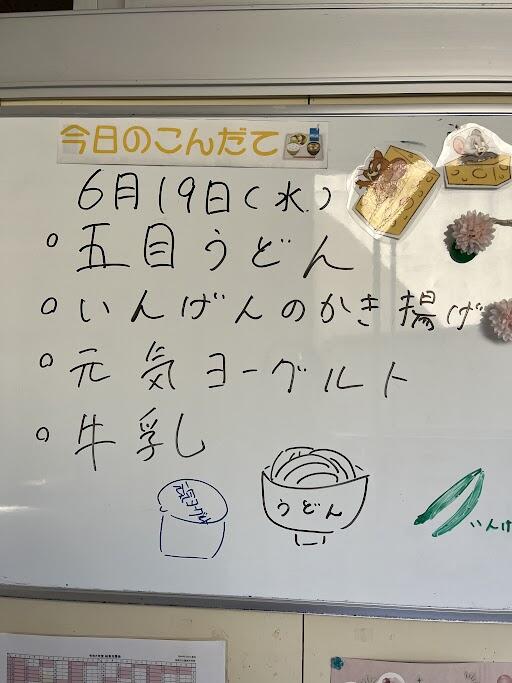 今日のこんだて
6月19日(水)
○五目うどん
○いんげんのかき揚げ
○元気ヨーグルト
○牛乳
元気ヨーグルト
うどん
いんげ